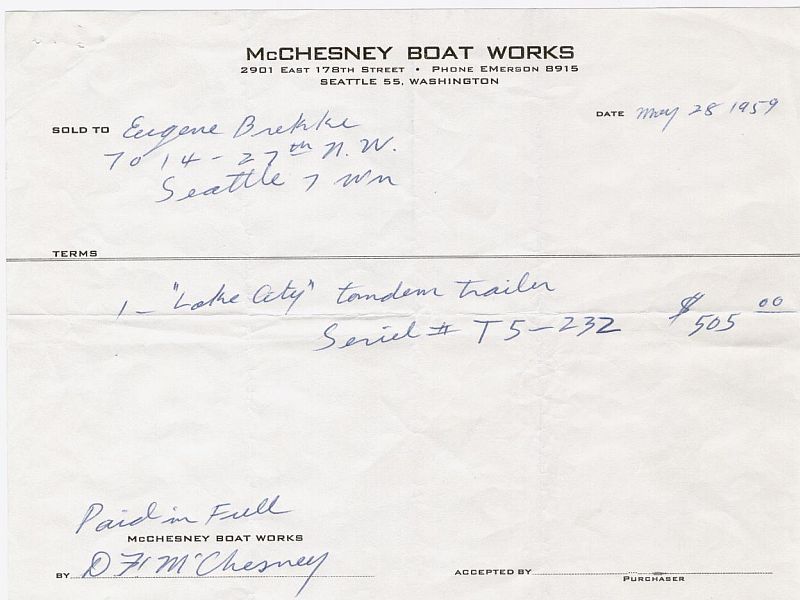 McCHESNEY BOAT WORKS
2901 EAST 178TH STREET • PHONE EMERSON 8915
SEATTLE 55, WASHINGTON
DATE May 28 1959
SOLD TO Eugene Brekke
7014 - 27th N.W.
Seattle 7 Wn
TERMS
1 - "Lake City" tandem trailer
Seriel # T5-232 $505 00
Paid in Full
McCHESNEY BOAT WORKS
BY D H McChesney
ACCEPTED BY
PURCHASER